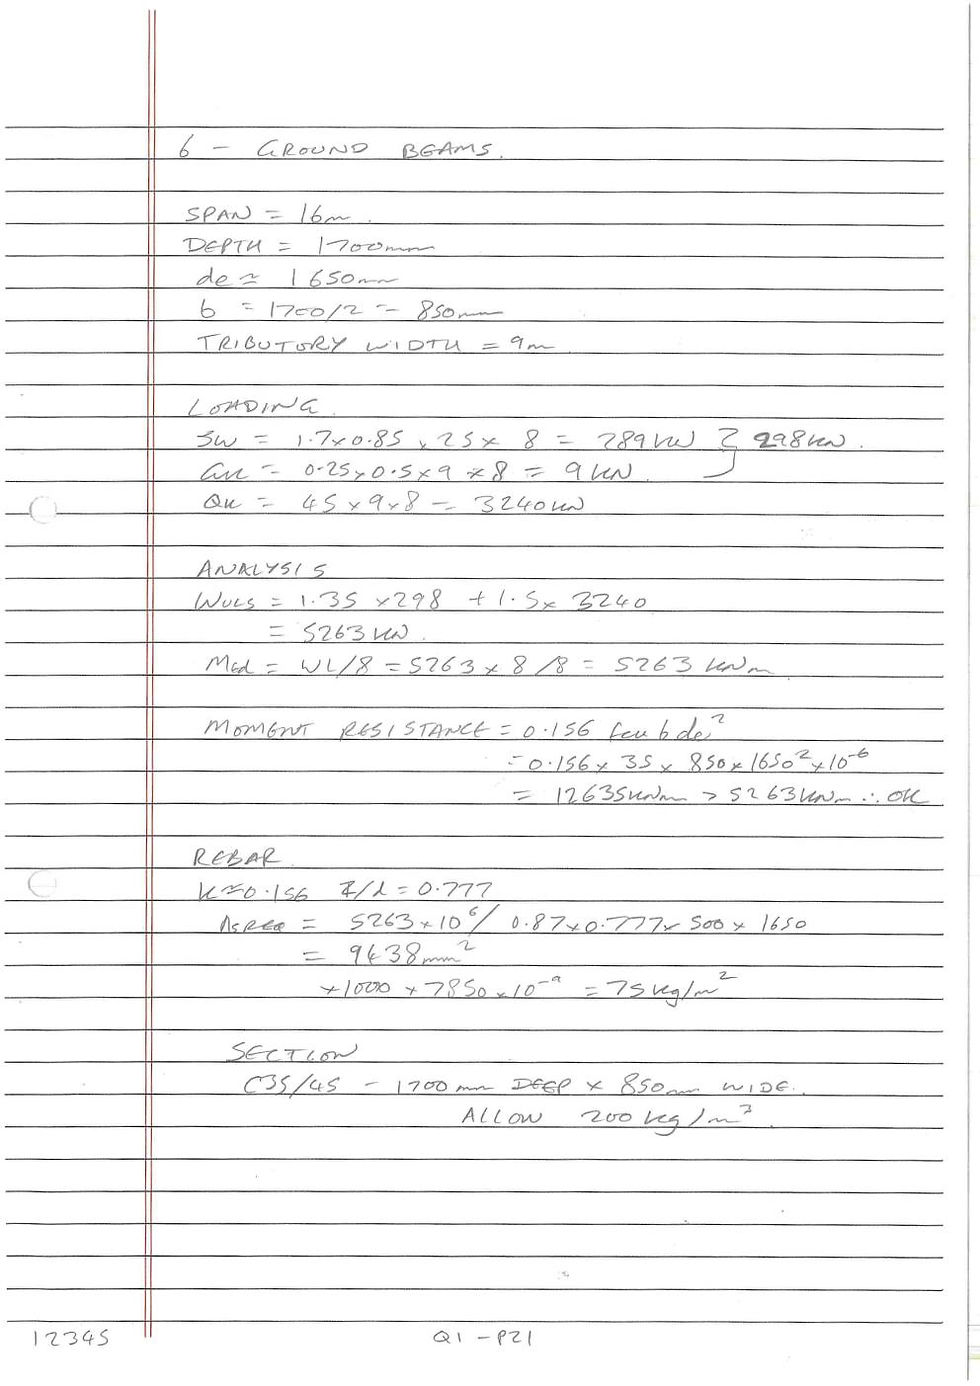 6 - GROUND BEAMS.
SPAN = 16m.
DEPTH = 1700mm
de ≈ 1650mm
b = 1700/2 = 850mm
TRIBUTORY WIDTH = 9m
LOADING
SW = 1.7x0.85 x 25x 8 = 289kN } 298kN.
Gk = 0.25x0.5x9 x8 = 9kN
Qk = 45x9x8 = 3240kN
ANALYSIS
WULS = 1.35 x298 + 1.5x 3240
= 5263kN.
Med = WL/8 = 5263x8/8 = 5263kNm
MOMENT RESISTANCE = 0.156 fcu b de²
= 0.156x 35x 850x1650²x10⁻⁶
= 12635kNm > 5263kNm ∴ OK
REBAR
K≈0.156 Z/d = 0.777
ASREQ = 5263x10⁶/ 0.87x0.777x 500x 1650
= 9438mm²
x1000 x 7850x10⁻⁹ = 75kg/m²
SECTION
C35/45 - 1700mm DEEP x 850mm WIDE.
ALLOW 200kg/m³
12345 Q1 -P21